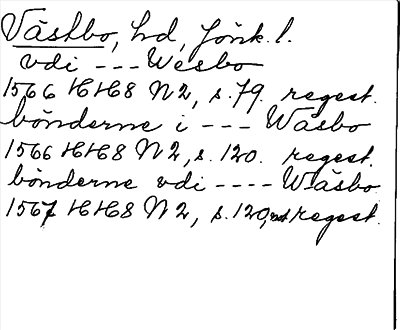 Västbo, hd, Jönk. l.
vdi --- Wesbo
1566 HH8 N2, s. 79. regest.
bönderne i --- Wäsbo
1566 HH8 N2, s. 120. regest.
bönderne vdi ---- Wäsbo
1567 HH8 N2, s. 120, regest.